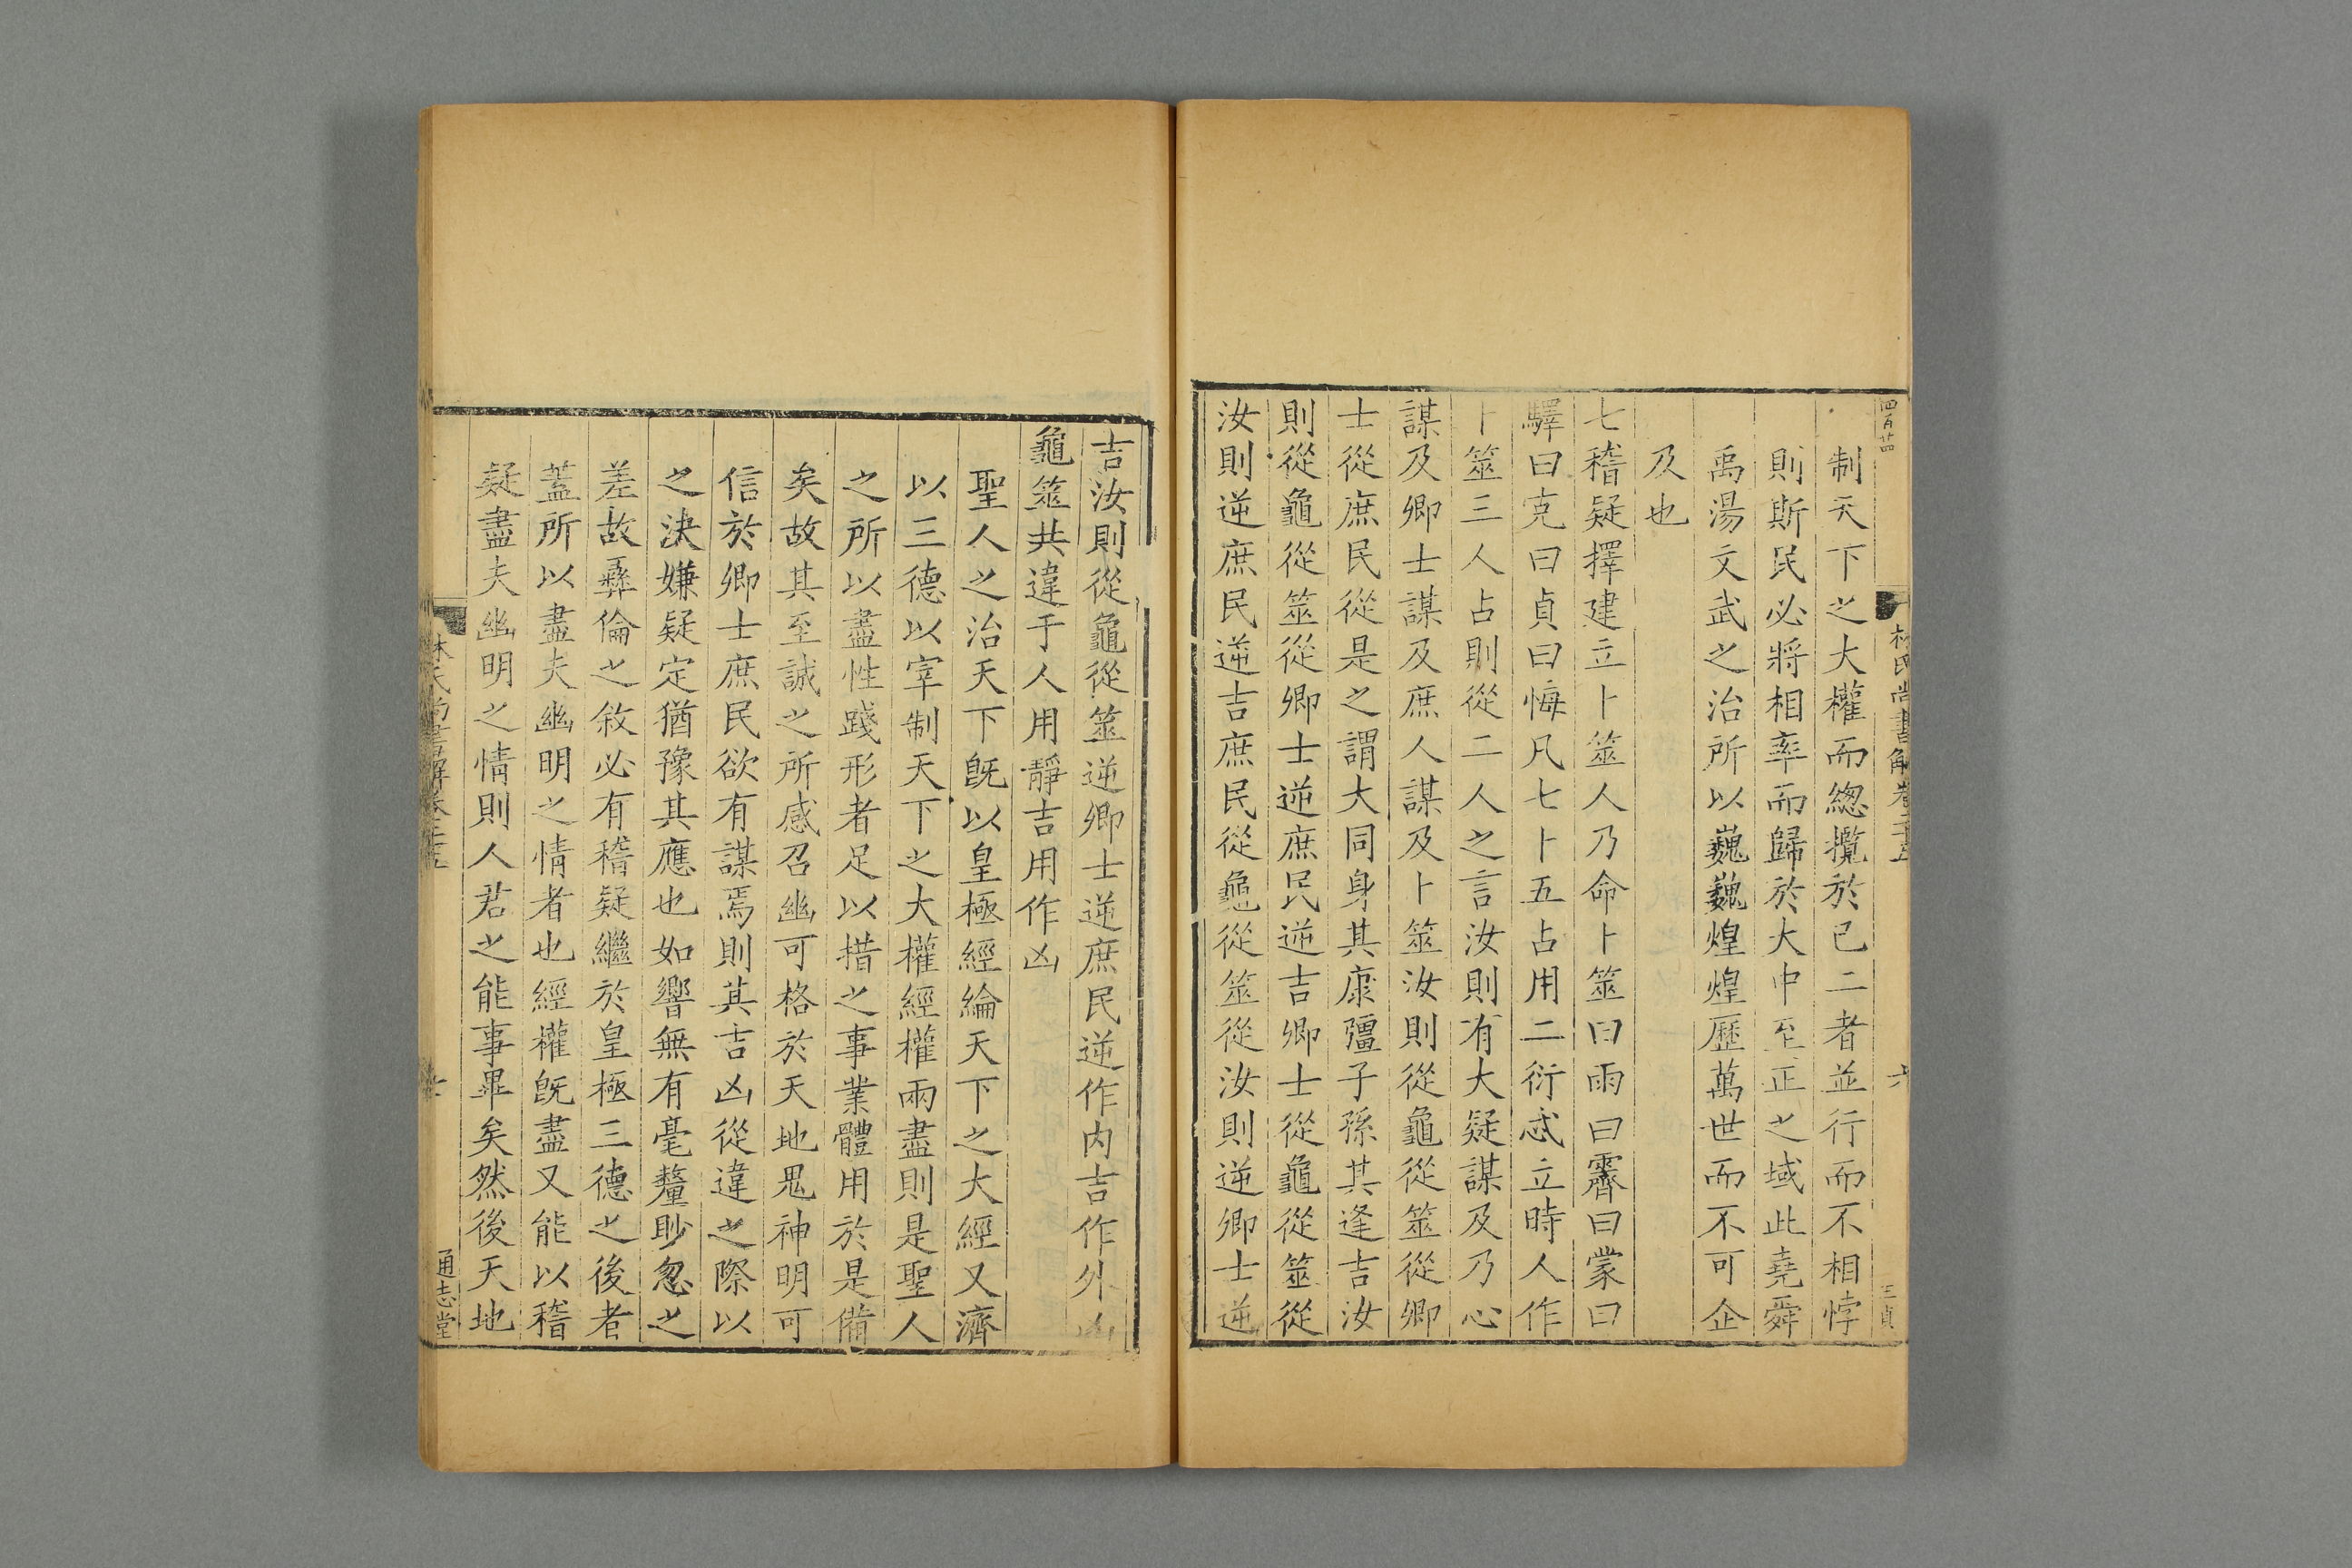 林氏尚書解卷二十五
六
制天下之大權而緫攬於已二者並行而不相悖
則斯民必將相率而歸於大中至正之域此堯舜
禹湯文武之治所以巍巍煌煌歷萬世而不可企
及也
七稽疑擇建立卜筮人乃命卜筮曰雨曰霽曰蒙曰
驛曰克曰貞曰悔凡七卜五占用二衍忒立時人作
卜筮三人占則從二人之言汝則有大疑謀及乃心
謀及卿士謀及庶人謀及卜筮汝則從龜從筮從卿
士從庶民從是之謂大同身其康彊子孫其逢吉汝
則從龜從筮從卿士逆庶民逆吉卿士從龜從筮從
汝則逆庶民逆吉庶民從龜從筮從汝則逆卿士逆
吉汝則從龜從筮逆卿士逆庶民逆作内吉作外凶
龜筮共違于人用靜吉用作凶
聖人之治天下旣以皇極經綸天下之大經又濟
以三德以宰制天下之大權經權兩盡則是聖人
之所以盡性踐形者足以措之事業體用於是備
矣故其至誠之所感召幽可格於天地鬼神明可
信於卿士庶民欲有謀焉則其吉凶從違之際以
之決嫌疑定猶豫其應也如響無有毫釐眇忽之
差故彞倫之敘必有稽疑繼於皇極三德之後者
蓋所以盡夫幽明之情者也經權旣盡又能以稽
疑盡夫幽明之情則人君之能事畢矣然後天地
通志堂